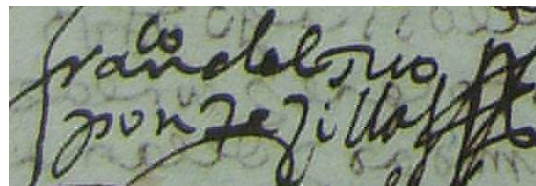 fran^co del Rio
ponzezillas